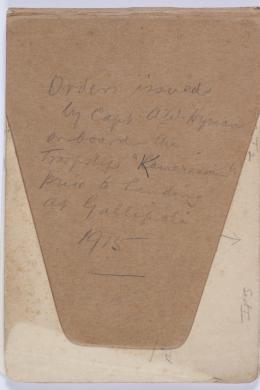 Orders issued
by Capt A.W. Hyman
on board the
Troopship "Kanowna"
Prior to landing
at Gallipoli
1915